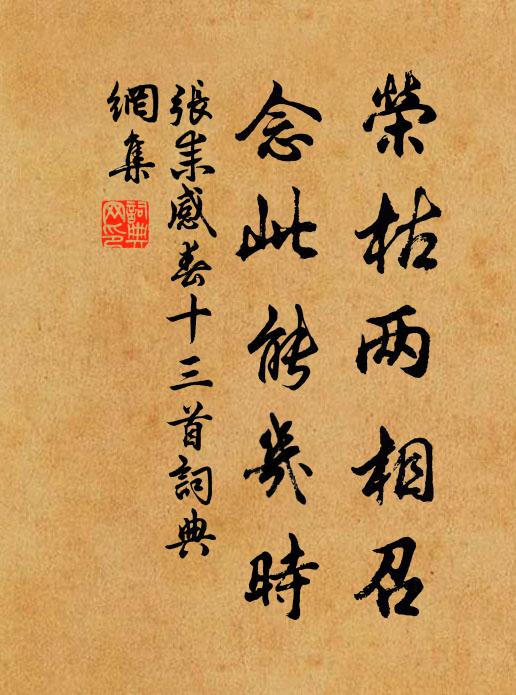 榮枯两相召
念此能幾時
張耒感春十三首詞典
網集
詞典
网印